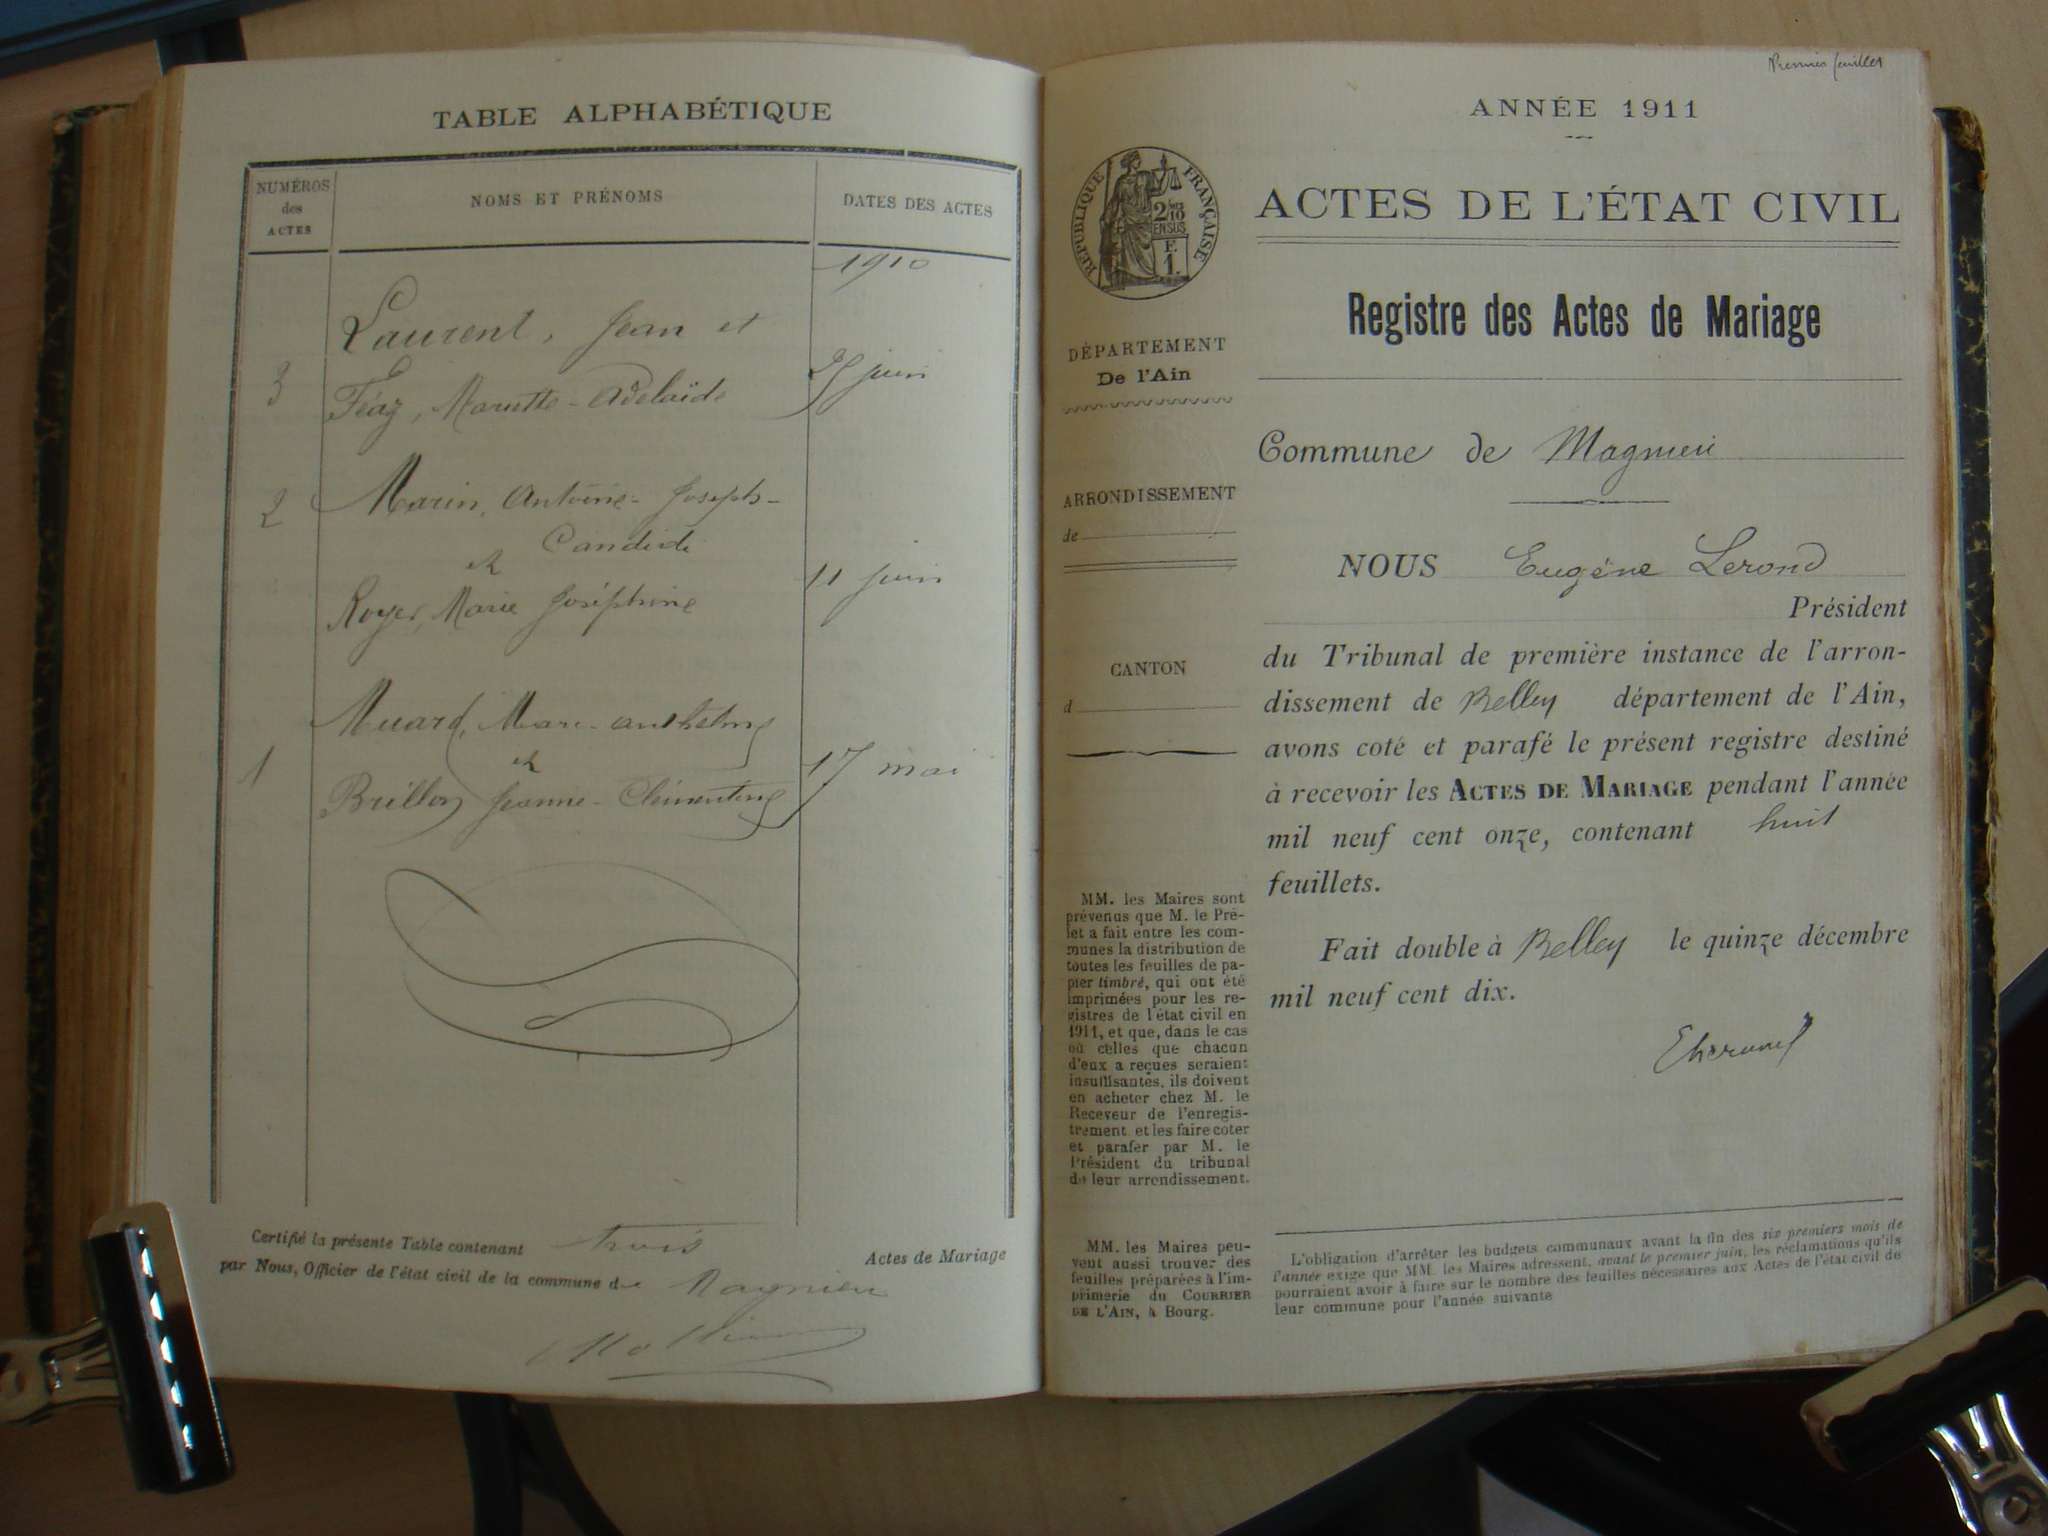 TABLE ALPHABÉTIQUE
NUMÉROS
des
ACTES
NOMS ET PRÉNOMS
DATES DES ACTES
1910
Laurent, Jean et
3
25 juin
Féaz, Mariette-Adelaïde
2
Marin, Antoine-Joseph-
Candide
et
11 juin
Royer, Marie Joséphine
Muard, Marc-Anthelme
1
et
17 mai
Brillon Jeanne-Clémentine
Certifié la présente Table contenant trois Actes de Mariage
par Nous, Officier de l'état civil de la commune de Magnieu
Premier feuillet
ANNÉE 1911
RÉPUBLIQUE FRANÇAISE
2/10
EN SUS
F.
1.
ACTES DE L'ÉTAT CIVIL
Registre des Actes de Mariage
DÉPARTEMENT
De l'Ain
ARRONDISSEMENT
de
CANTON
d
MM. les Maires sont
prévenus que M. le Pré-
fet a fait entre les com-
munes la distribution de
toutes les feuilles de pa-
pier timbré, qui ont été
imprimées pour les re-
gistres de l'état civil en
1911, et que, dans le cas
où celles que chacun
d'eux a reçues seraient
insuffisantes, ils doivent
en acheter chez M. le
Receveur de l'enregis-
trement et les faire coter
et parafer par M. le
Président du tribunal
de leur arrondissement.
MM. les Maires peu-
vent aussi trouver des
feuilles préparées à l'im-
primerie du COURRIER
DE L'AIN, à Bourg.
Commune de Magnieu
NOUS Eugène Lerond
Président
du Tribunal de première instance de l'arron-
dissement de Belley département de l'Ain,
avons coté et parafé le présent registre destiné
à recevoir les ACTES DE MARIAGE pendant l'année
mil neuf cent onze, contenant huit
feuillets.
Fait double à Belley le quinze décembre
mil neuf cent dix.
L'obligation d'arrêter les budgets communaux avant la fin des six premiers mois de
l'année exige que MM. les Maires adressent, avant le premier juin, les réclamations qu'ils
pourraient avoir à faire sur le nombre des feuilles nécessaires aux Actes de l'état civil de
leur commune pour l'année suivante